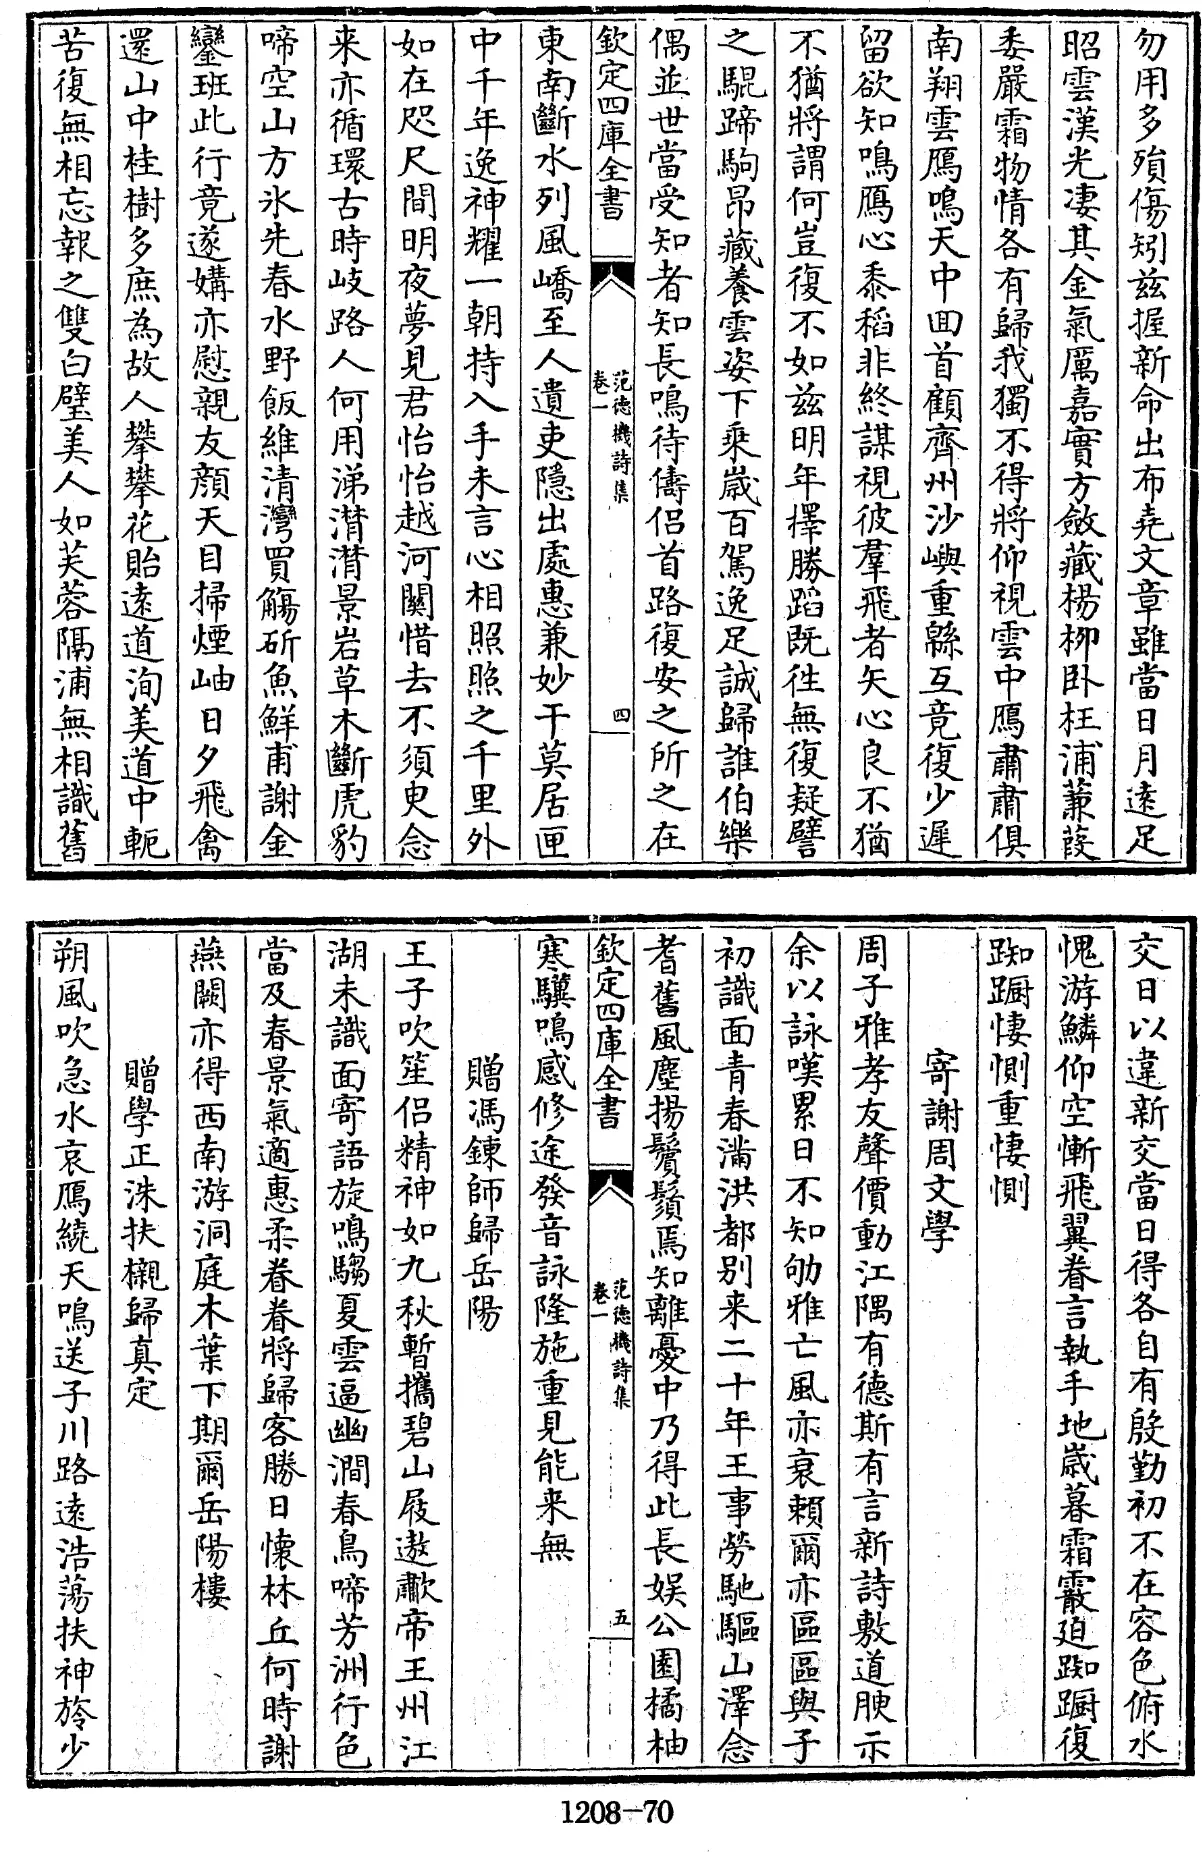 勿用多殞傷矧兹握新命出布堯文章雖當日月遠足
昭雲漢光凄其金氣厲嘉實方斂藏楊栁卧枉浦蒹葭
委嚴霜物情各有歸我獨不得將仰視雲中鴈肅肅俱
南翔雲鴈鳴天中囬首顧齊州沙嶼重緜互竟復少遲
留欲知鳴鴈心黍稻非終謀視彼羣飛者矢心良不猶
不猶將謂何豈復不如兹明年擇勝蹈既徃無復疑譬
之騉蹄駒昂藏養雲姿下乘歳百駕逸足誠歸誰伯樂
偶並世當受知者知長鳴待儔侣首路復安之所之在
欽定四庫全書
范德機詩集
卷一
四
東南斷水列風嶠至人遺吏隱出處惠兼妙干莫居匣
中千年逸神耀一朝持入手未言心相照照之千里外
如在咫尺間明夜夢見君怡怡越河關惜去不須臾念
来亦循環古時岐路人何用涕潸潸景岩草木斷虎豹
啼空山方氷先春水野飯維清灣買觴斫魚鮮甫謝金
鑾班此行竟遂媾亦慰親友顔天目掃煙岫日夕飛禽
還山中桂樹多庶為故人攀攀花貽遠道洵美道中軛
苦復無相忘報之雙白璧美人如芙蓉隔浦無相識舊
交日以違新交當日得各自有殷勤初不在容色俯水
愧游鱗仰空慚飛翼眷言執手地歳暮霜霰廹踟蹰復
踟蹰悽惻重悽惻
寄謝周文學
周子雅孝友聲價動江隅有德斯有言新詩敷道腴示
余以詠嘆累日不知劬雅亡風亦衰頼爾亦區區與子
初識面青春滿洪都别来二十年王事勞馳驅山澤念
耆舊風塵揚鬢鬚焉知離憂中乃得此長娱公園橘柚
欽定四庫全書
范德機詩集
卷一
五
寒驥鳴感修途發音詠隆施重見能来無
贈馮鍊師歸岳陽
王子吹笙侣精神如九秋暫攜碧山屐遨歗帝王州江
湖未識面寄語旋鳴騶夏雲逼幽澗春鳥啼芳洲行色
當及春景氣適惠柔眷眷將歸客勝日懐林丘何時謝
燕闕亦得西南游洞庭木葉下期爾岳陽樓
贈學正洙扶櫬歸真定
朔風吹急水哀鴈繞天鳴送子川路遠浩蕩扶神旍少
1208-70